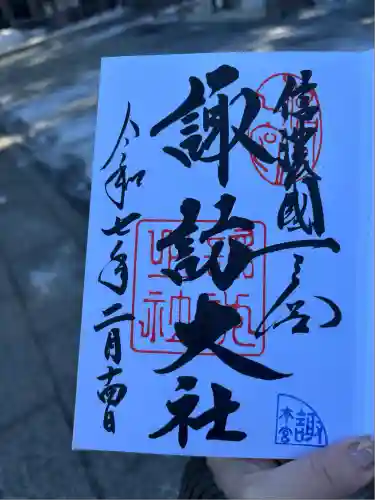 信濃國一之宮
諏訪大社
令和七年二月十四日
諏訪大社
本宮
諏